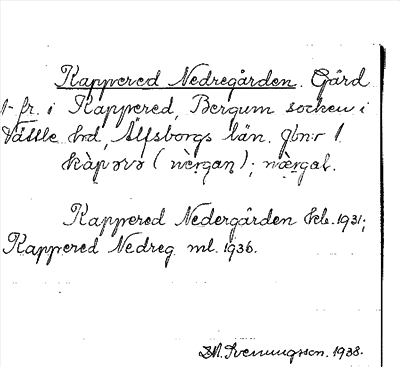 Kappered Nedregården. Gård
fr. i Kappered, Bergum socken i
Vättle hd, Älfsborgs län. Jbnr 1
kàpərə (nèrgaɳ); nærgal.
Kappered Nedergården kb. 1931;
Kappered Nedreg. ml. 1936.
Svenungsson. 1938.